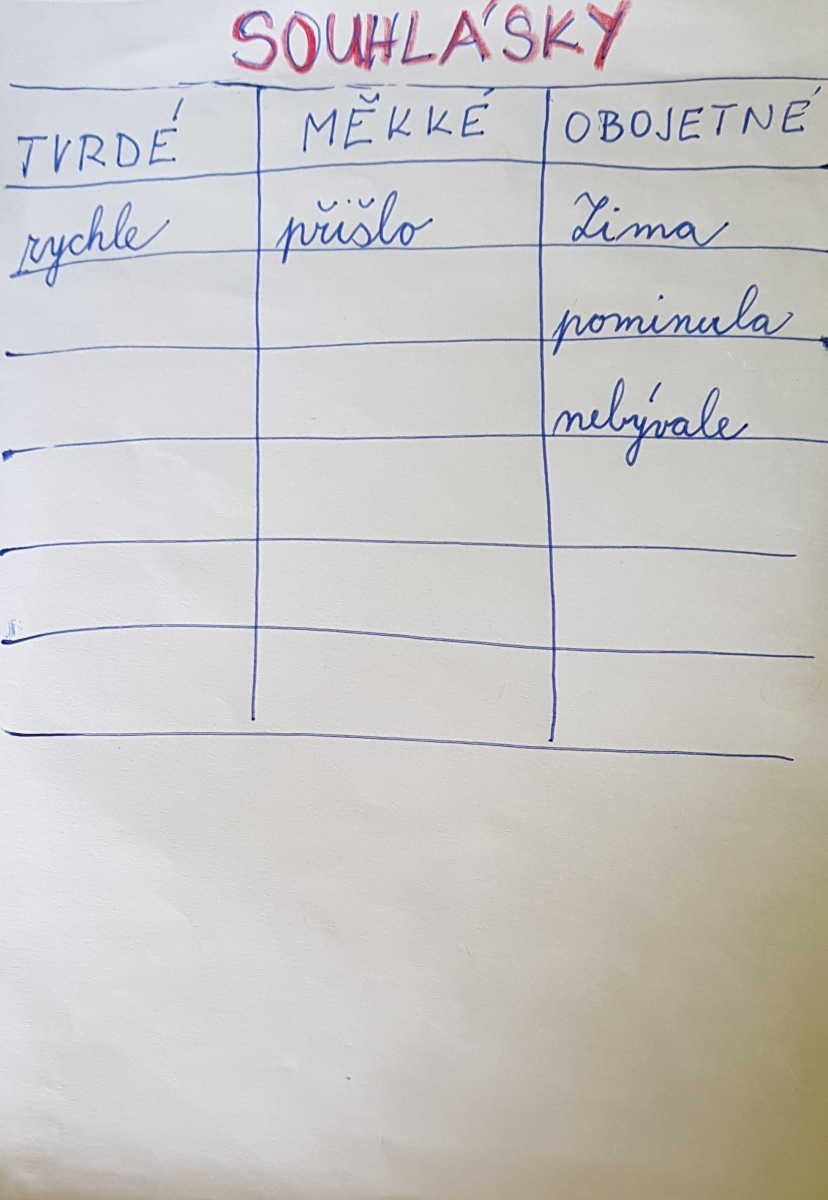 SOUHLÁSKY
TVRDÉ MĚKKÉ OBOJETNÉ
rychle přišlo Zima
pominula
nebývale